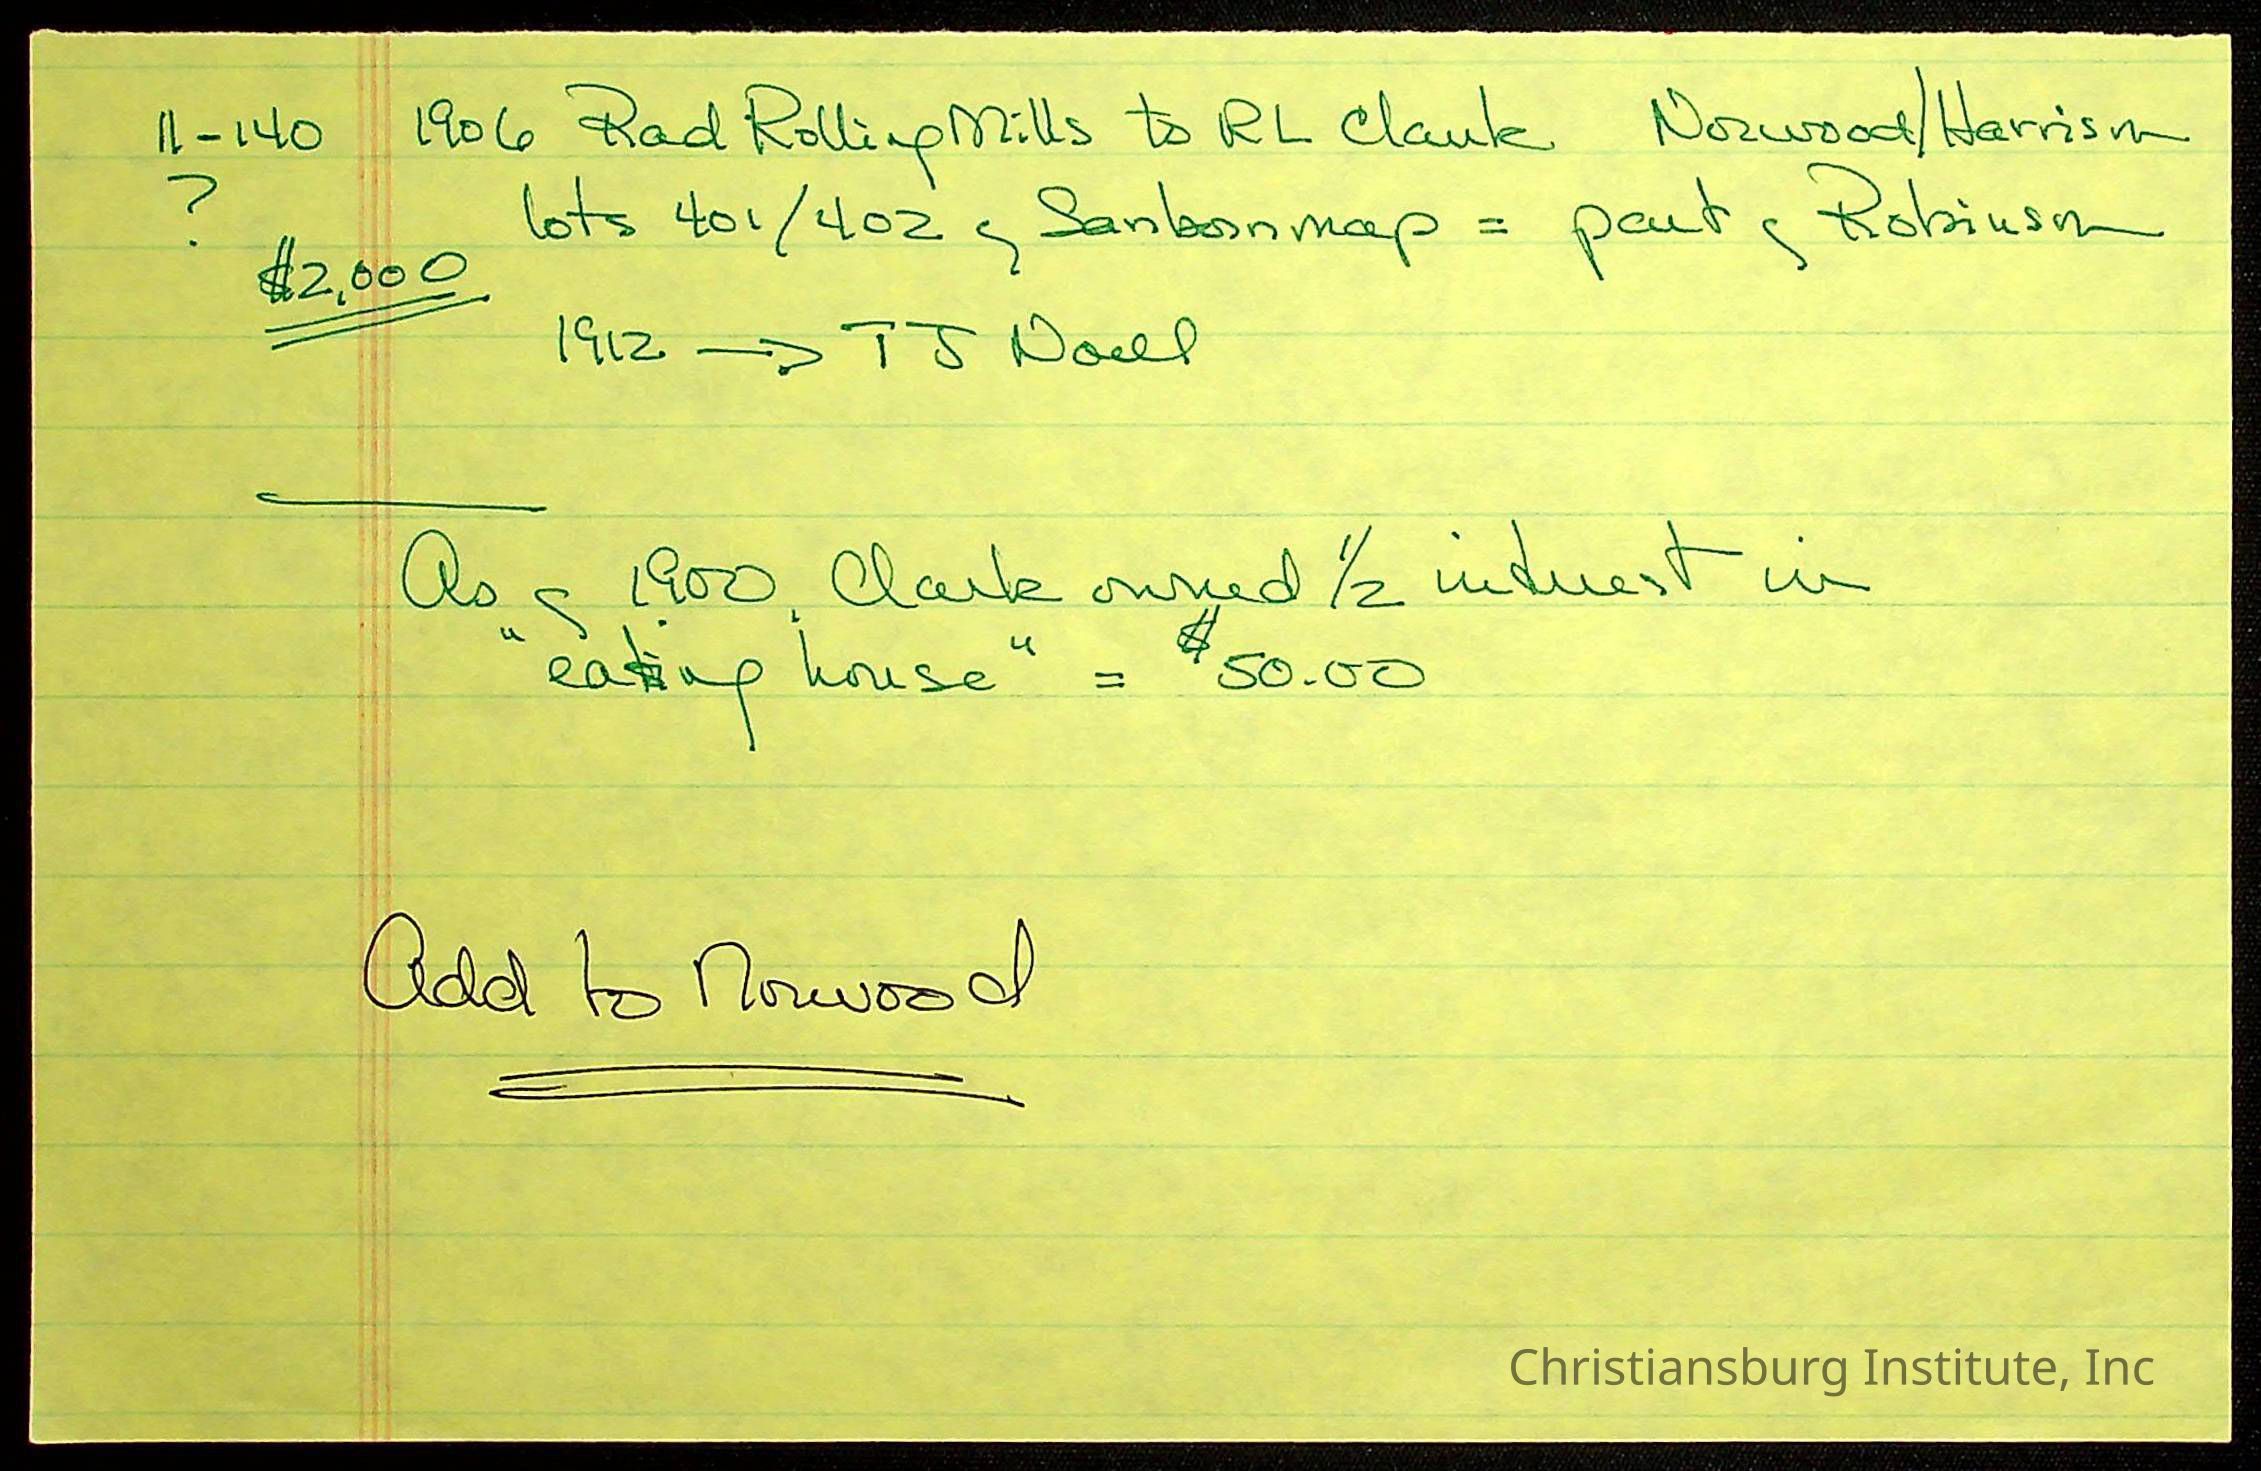 11-140 1906 Rad Rolling Mills to RL Clark Norwood/Harrison
? lots 401/402 of Sanborn map = part of Robinson
$2,000
1912 → TJ Noell
As of 1900, Clark owned 1/2 interest in
"eating house" = $50.00
Add to Norwood
Christiansburg Institute, Inc